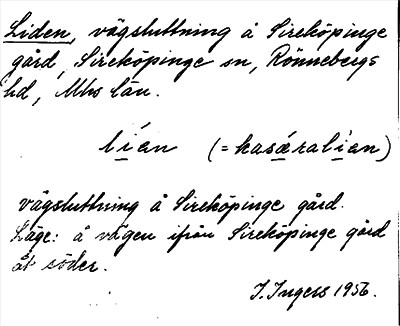 Liden, vägsluttning å Sireköpinge
gård, Sireköpinge sn, Rönnebergs
hd, Mhs län.
líen (=kasǽralíen)
vägsluttning å Sireköpinge gård.
Läge: å vägen ifrån Sireköpinge gård
åt söder.
I. Ingers 1956.